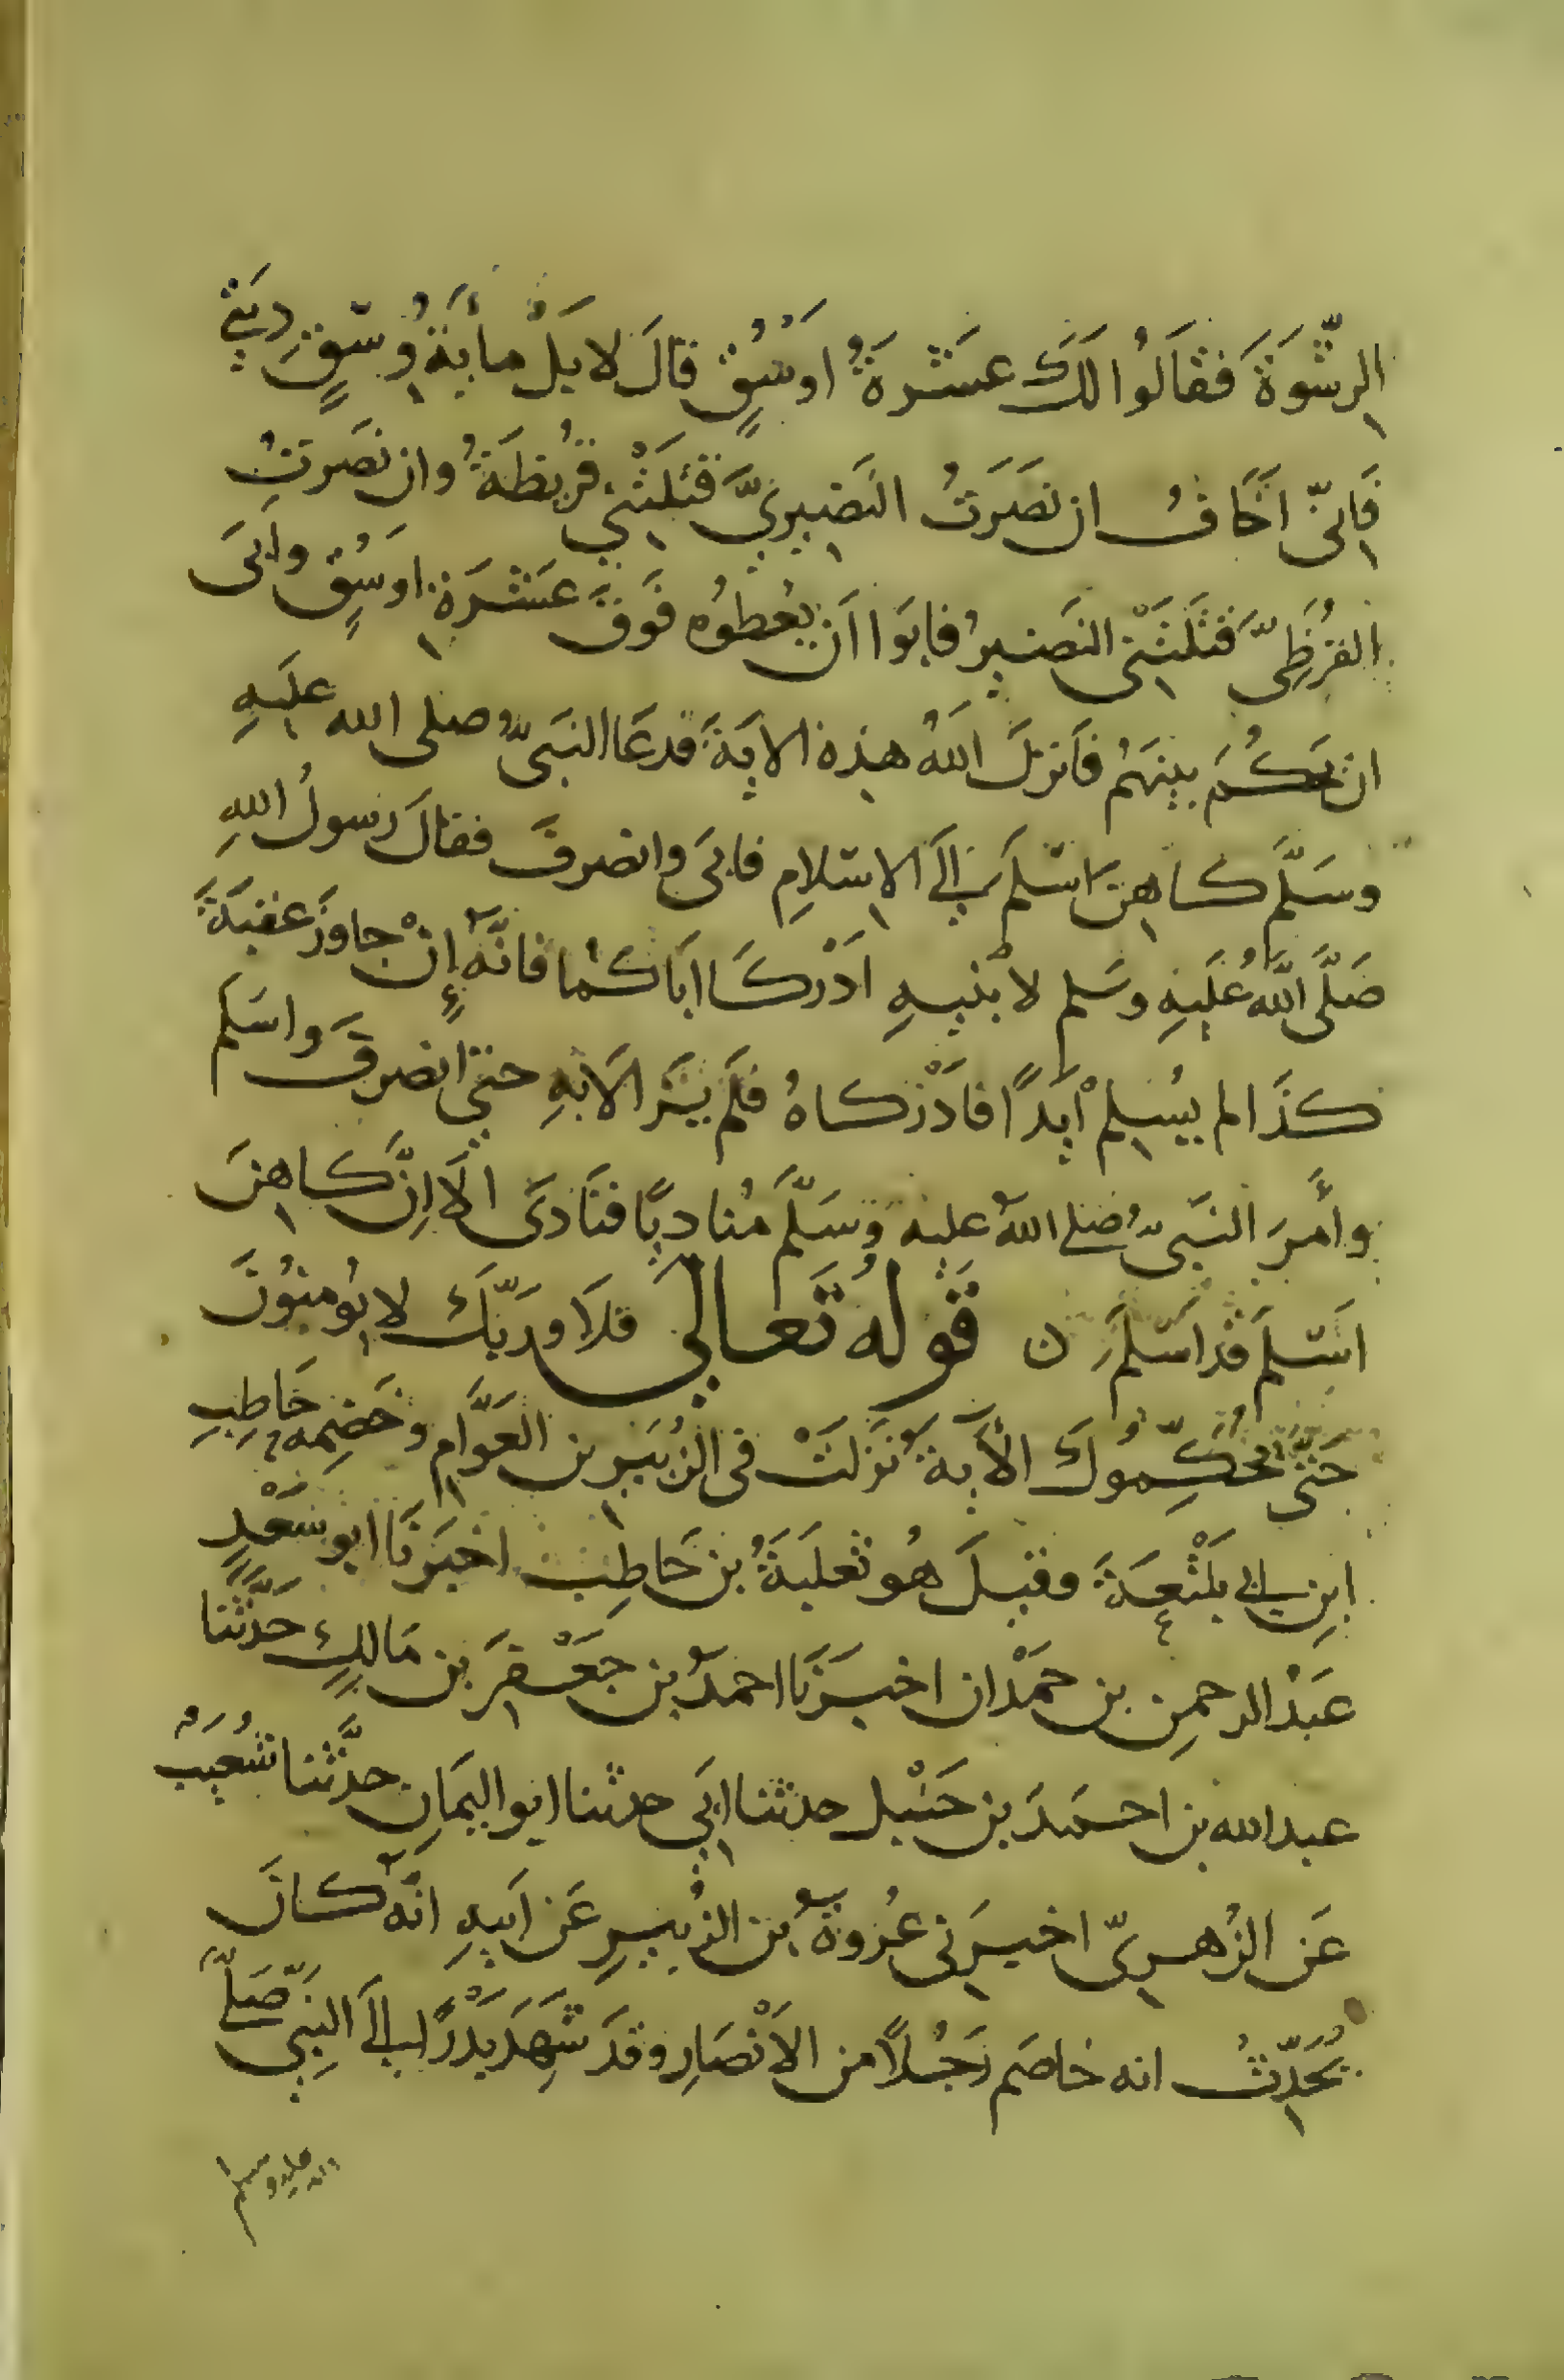 الرِّشْوَةَ فَقَالُوا لَكَ عَشَرَةُ اوسُقٍ قالَ لا بَلْ مايَةُ وَسْقٍ دِيَتي
فَاِنّي اَخَافُ ان نَصَرتُ النَضِيرِيَّ قَتَلَتْني قُرَيظَةُ وان نَصَرتُ
القُرَظِيَّ قَتَلَتْنِي النَضيرُ فابَوا اَن يُعطُوه فَوقَ عَشَرَةِ اوسُقٍ وابَى
ان يَحكُمَ بينَهُم فَانزلَ اللهُ هذه الايةَ فدعَا النَبيُّ صلى الله عليهِ
وسَلَّم كاهِنَ اَسْلَمَ اِلَى الاِسْلامِ فابَى وانصرفَ فقالَ رسولُ اللهِ
صَلَّى اللهُ عَلَيهِ وسَلم لابْنَيهِ اَدْرِكَا اَبَاكُمَا فانَّه اِنْ جاوَزَ عقبَةَ
كذَا لم يُسْلِمْ اَبَداً فادْرَكاهُ فلَم يَزَالا بِهِ حتي انصرفَ واسَلَم
وأَمرَ النَبيُّ صلى اللهُ عليه وَسَلَّمَ مُناديًا فنَادَى الَا اِنَّ كاهِنَ
اَسْلمَ قَد اَسْلَمَ ن قَولُه تَعالي فلَا وَرَبِّكَ لا يُومِنُونَ
حَتَّى يُحَكِّمُوكَ الآيةُ نَزَلَتْ فى الزُبَيرِ بن العَوَّامِ وخَصْمِه حَاطِبِ
ابنِ ابي بَلْتَعَةَ وقيلَ هُو ثعلَبَةُ بن حَاطِب اخبَرَنَا ابو سَعْدٍ
عَبْدُ الرحمن بن حَمْدان اخبَرَنَا احمدُ بن جَعْفَر بن مَالكٍ حَدَّثَنا
عبد الله بن احمَدَ بن حَنْبل حدثنا ابَي حدثنا ابو اليَمَانِ حدَّثنا شُعَيبُ
عَن الزُهرِيّ اخبرَنِى عُروةُ بن الزُبيرِ عَن اَبيهِ انَّه كانَ
يُحَدِّثُ انه خاصَم رَجُلاً من الاَنْصَارِ وقَد شَهِدَ بَدْرًا اِلَى النبِي صَلَّى
الله عليه وسلم